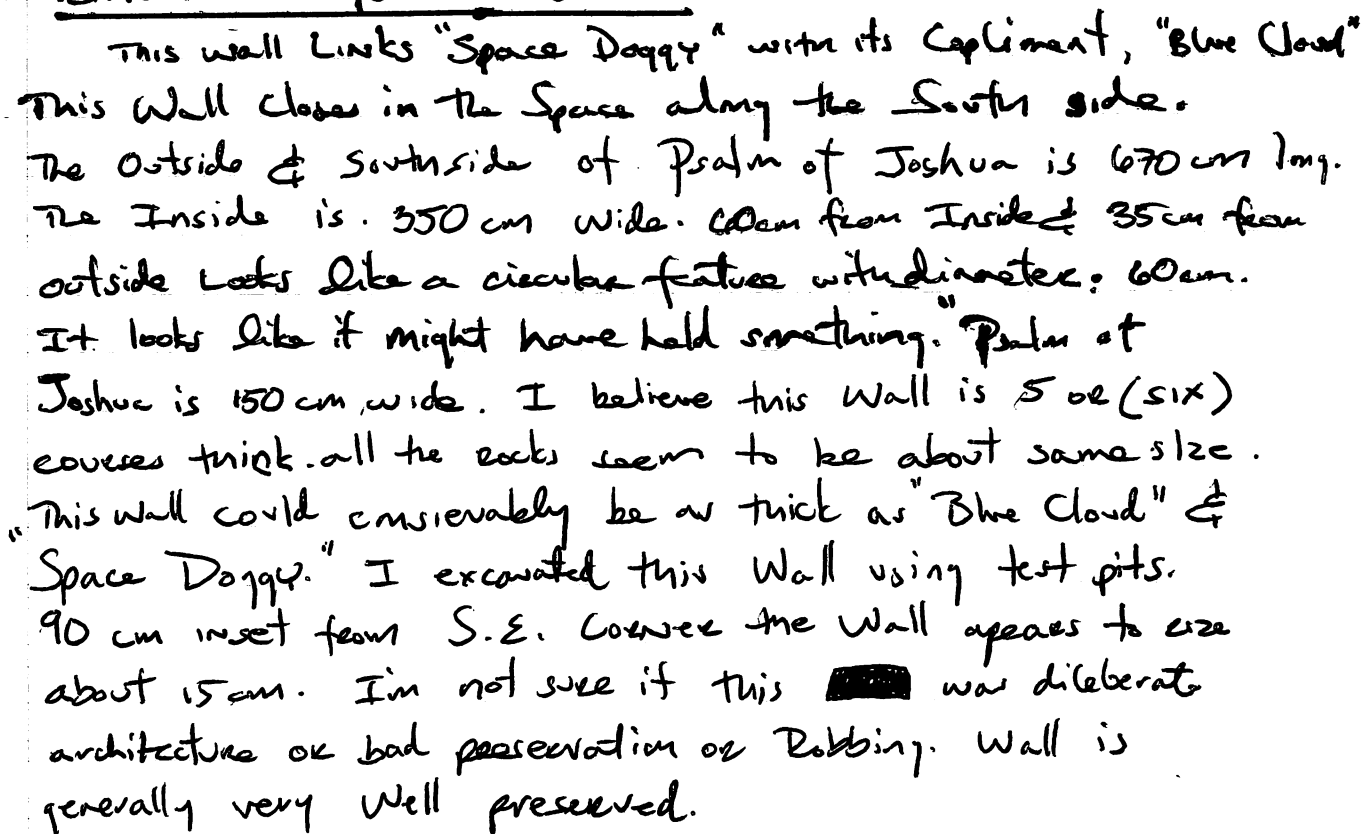 This wall Links "Space Doggy" with its Copliment, "Blue Cloud"
This Wall closes in the Space along the South side.
The Outside & Southside of Psalm of Joshua is 670 cm long.
The Inside is. 350 cm wide. 60cm from Inside & 35 cm from
outside Looks like a circular feature with diameter: 60cm.
It looks like it might have held something. "Psalm of
Joshua is 150 cm wide. I believe this Wall is 5 or (six)
courses thick. all the rocks seem to be about same size.
"This wall could consievably be as thick as "Blue Cloud" &
Space Doggy." I excavated this Wall using test pits.
90 cm inset from S.E. Corner the Wall apears to rize
about 15 cm. I'm not sure if this was dileberate
architecture or bad preservation or Robbing. Wall is
generally very Well preserved.